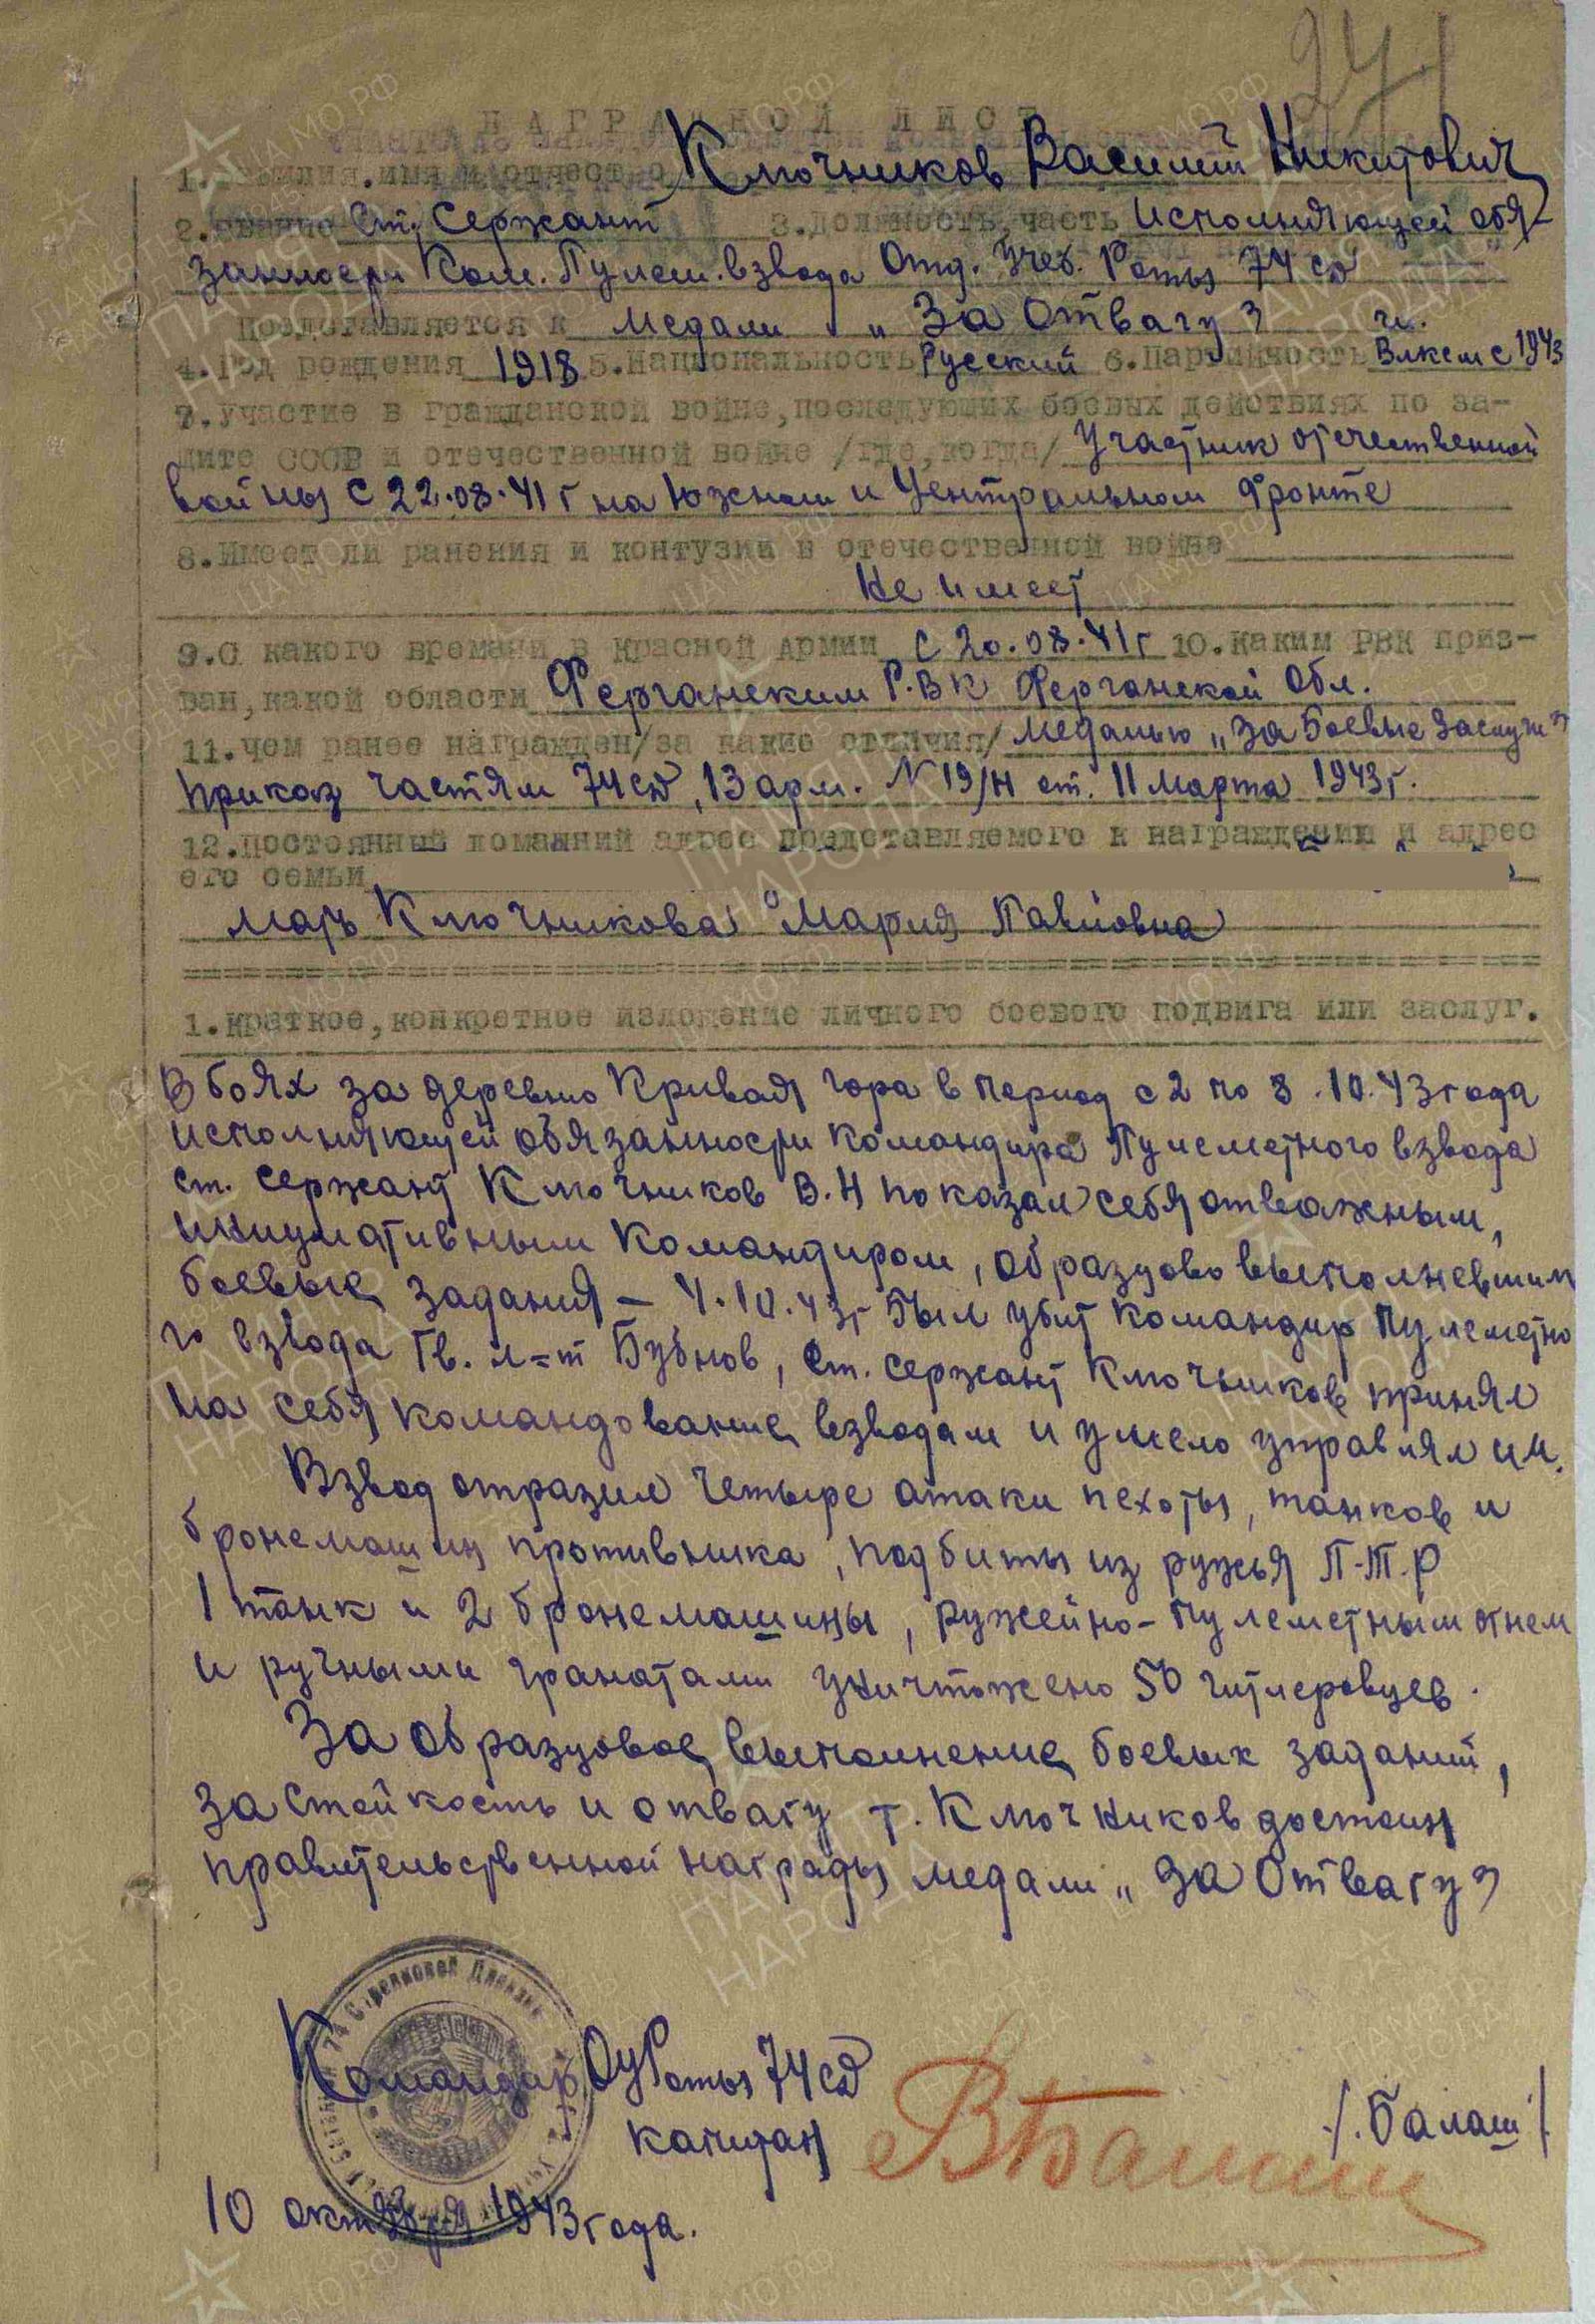 241
НАГРАДНОЙ ЛИСТ
1. Фамилия, имя и отчество Ключников Василий Никитович
2. Звание Ст. Сержант 3. Должность, часть Исполняющей обя-
занности Ком. Пулем. взвода Отд. Учеб. Роты 74 сд
Представляется к Медали „За Отвагу"
4. Год рождения 1918 5. Национальность Русский 6. Партийность Влксм с 1943
7. Участие в гражданской войне, последующих боевых действиях по за-
щите СССР и отечественной войне /где, когда/ Участник отечественной
войны с 22.08.41 г на Южном и Центральном Фронте
8. Имеет ли ранения и контузии в отечественной войне
Не имеет
9. С какого времени в Красной Армии с 20.08.41 г 10. Каким РВК приз-
ван, какой области Ферганским Р.В К Ферганской Обл.
11. Чем ранее награжден /за какие отличия/ Медалью „За Боевые Заслуги"
приказ частям 74 сд, 13 арм. N 19/Н от. 11 Марта 1943 г.
12. Постоянный домашний адрес представляемого к награждению и адрес
его семьи
Мать Ключникова Мария Павловна
1. Краткое, конкретное изложение личного боевого подвига или заслуг.
В боях за деревню Кривая гора в период с 2 по 8.10.43 года
исполняющей обязанности командира Пулеметного взвода
ст. сержант Ключников В.Н показал себя отважным,
инициативным командиром, образцово выполневшим
боевые задания – 4.10.43 г был убит командир пулеметно
го взвода Гв. л-т Бубнов, ст. сержант Ключников принял
на себя командование взводам и умело управлял им.
Взвод отразил четыре атаки пехоты, танков и
бронемашин противника, подбиты из ружья П.Т.Р
1 танк и 2 бронемашины, ружейно-пулеметным огнем
и ручными гранатами уничтожено 50 гитлеровцев.
За образцовое выполнение боевых заданий,
за стойкость и отвагу т. Ключников достоин
правительственной награды медали „За Отвагу"
Командир ОуРоты 74 сд
капитан /. Балаш /
10 октября 1943 года.